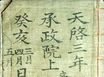 天啓三年
承政院上
癸亥
三月
四月
五月